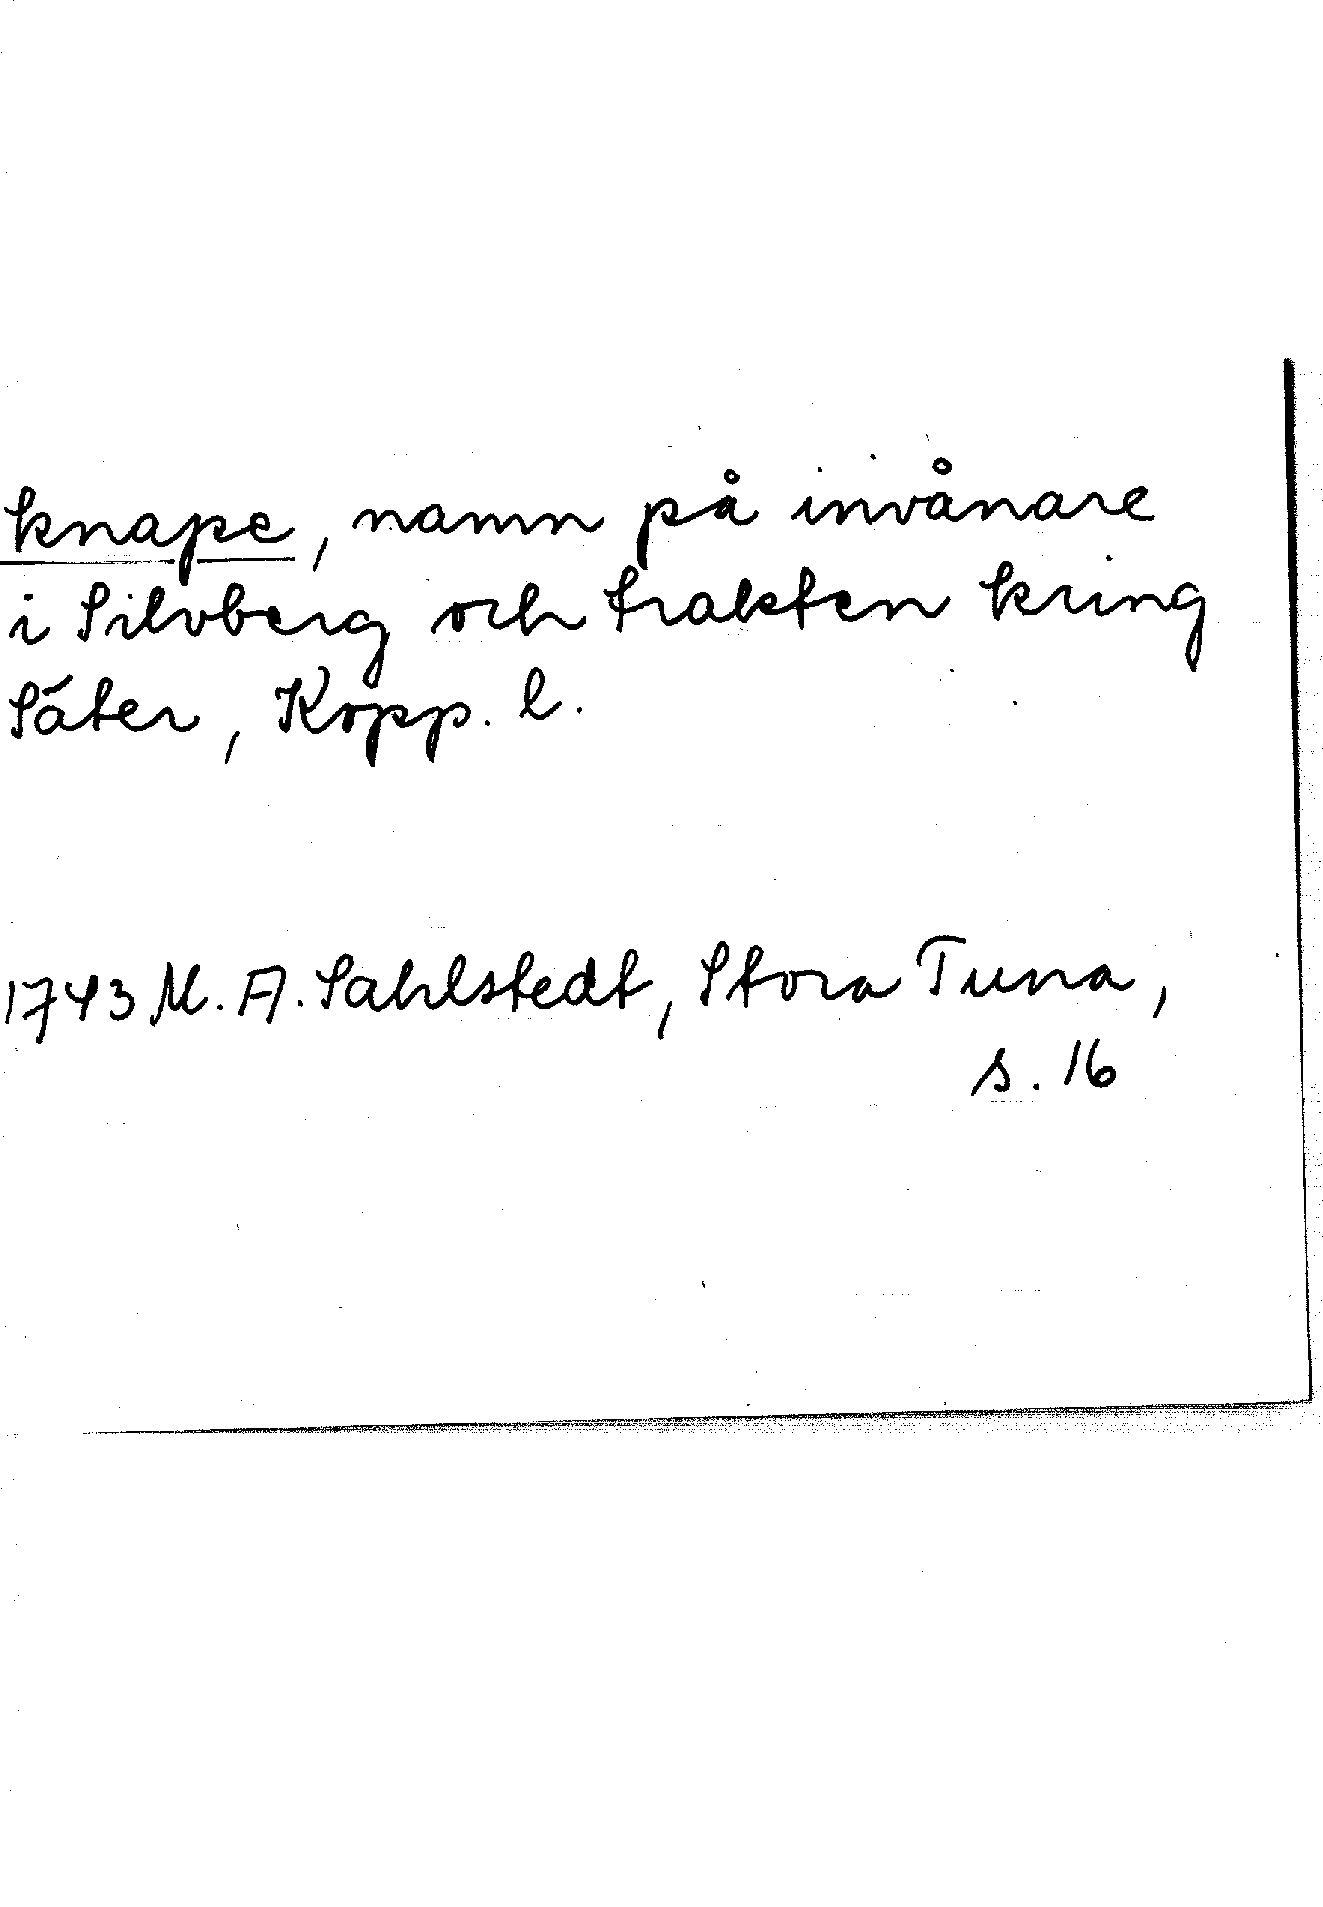 knape, namn på invånare
i Silvberg och trakten kring
Säter, Kopp. l.
1743 M. A. Sahlstedt, Stora Tuna,
s. 16